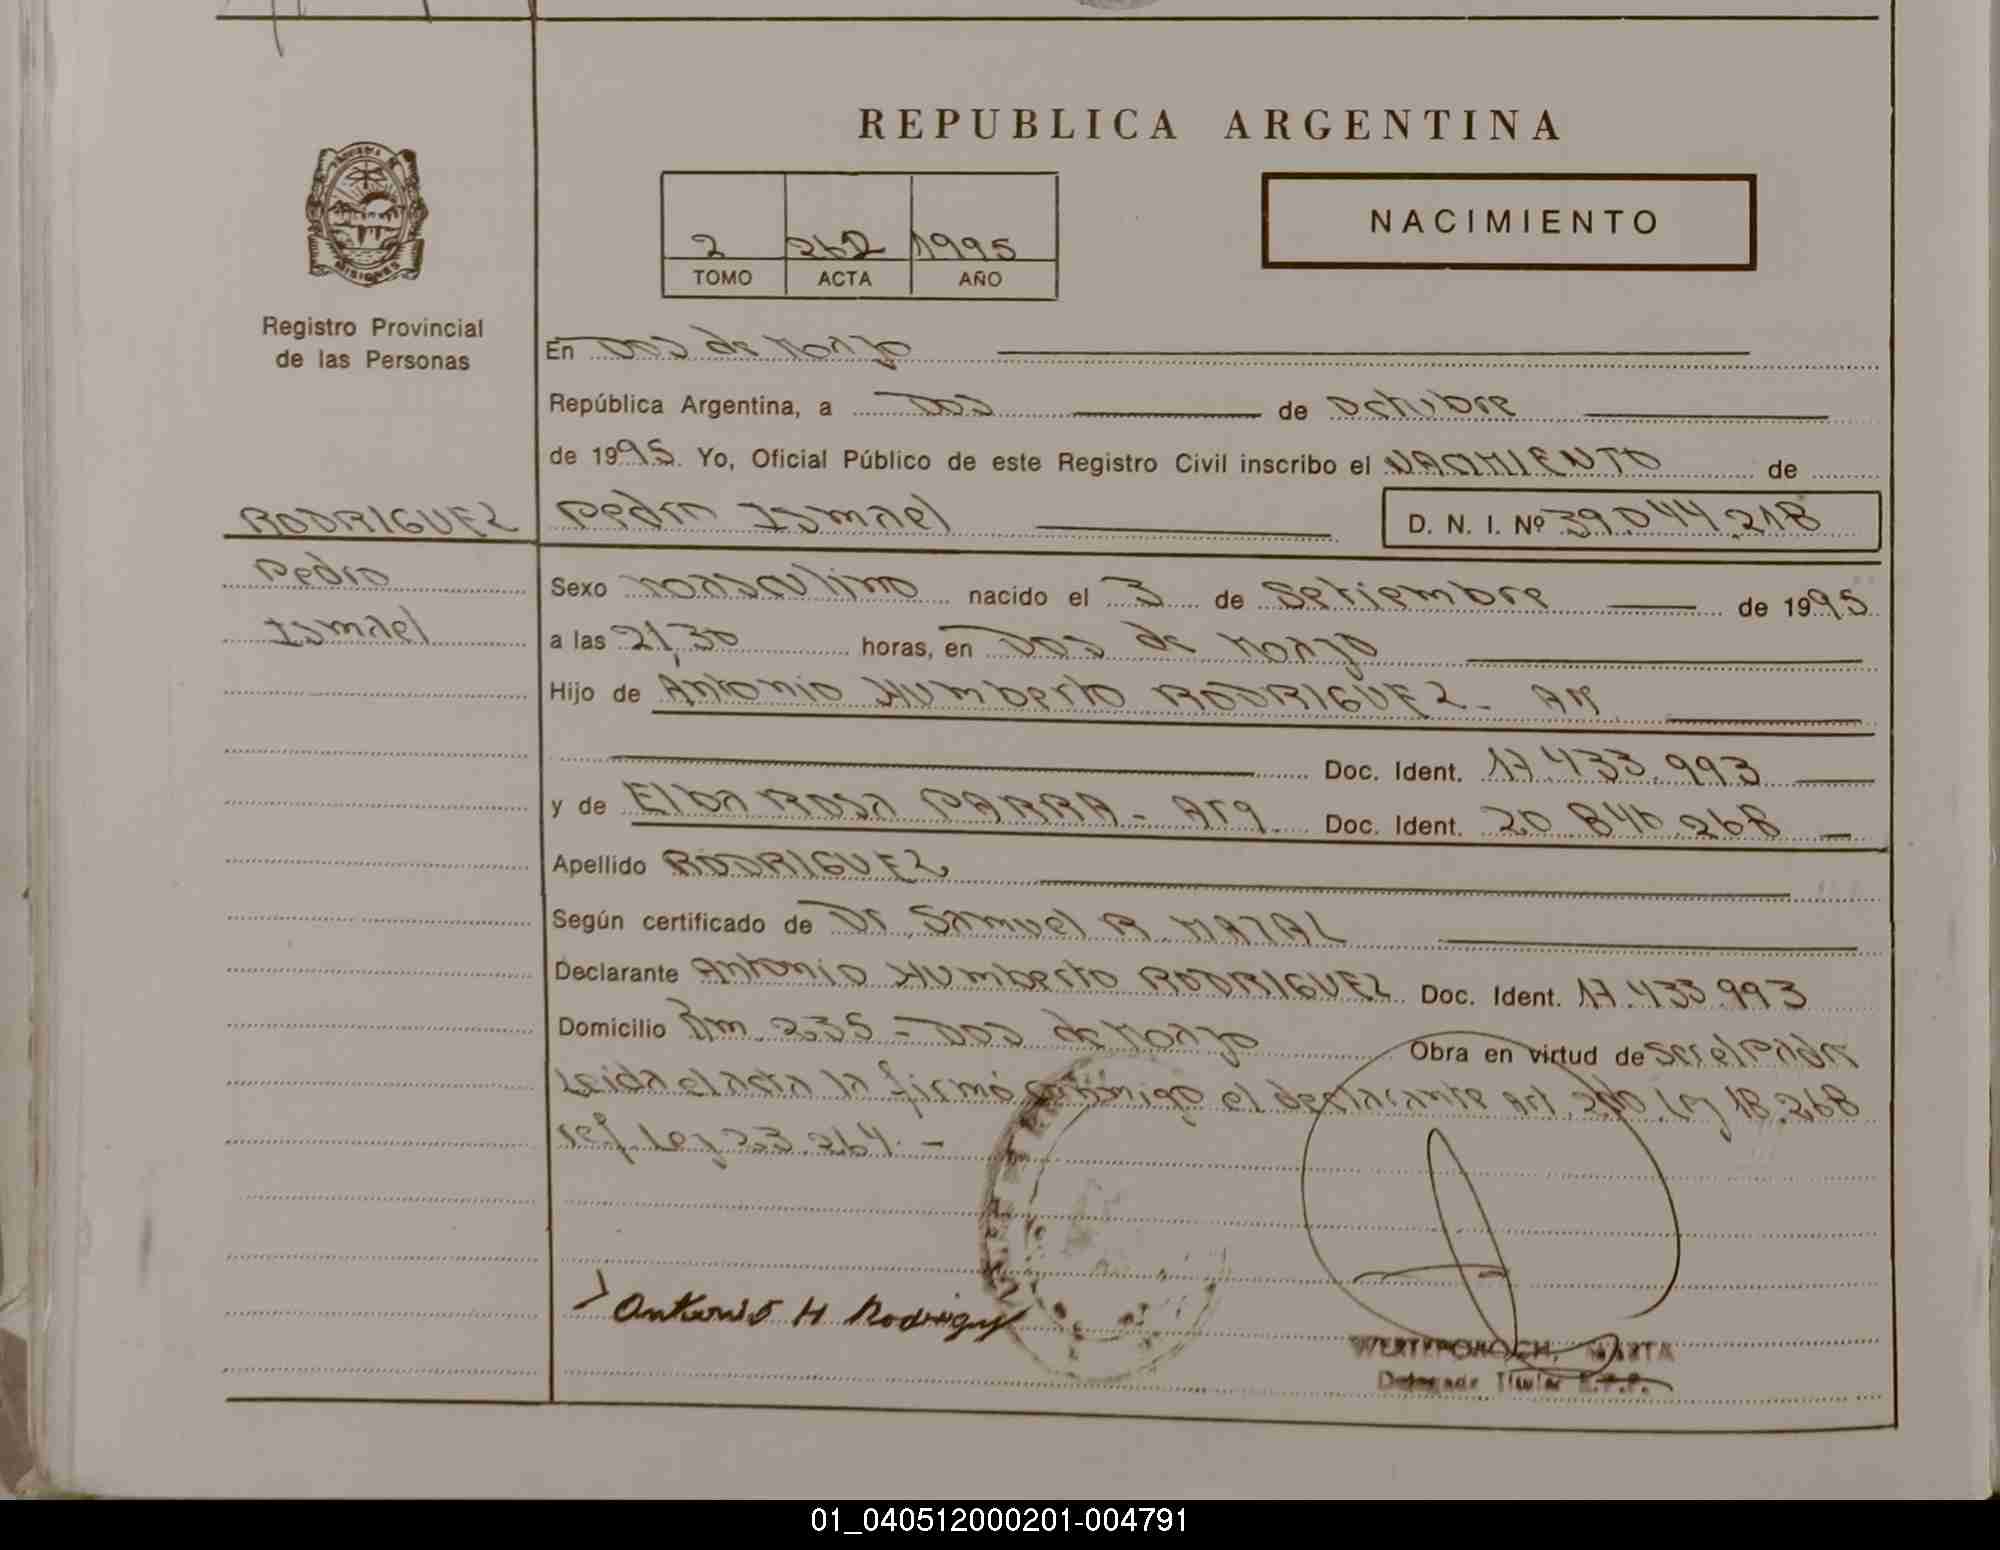 REPUBLICA ARGENTINA
NACIMIENTO
2 262 1995
TOMO ACTA AÑO
MISIONES
Registro Provincial
de las Personas
En Dos de Mayo
República Argentina, a Dos de octubre
de 1995. Yo, Oficial Público de este Registro Civil inscribo el NACIMIENTO de
RODRIGUEZ
Pedro Ismael D. N. I. Nº 39.044.218
Pedro
Ismael
Sexo masculino nacido el 3 de Setiembre de 1995
a las 21,30 horas, en Dos de Mayo
Hijo de Antonio Humberto RODRIGUEZ - Ar
Doc. Ident. 17.433.993
y de Elba Rosa PARRA - Arg. Doc. Ident. 20.840.268
Apellido RODRIGUEZ
Según certificado de Dr Samuel R.
Declarante Antonio Humberto RODRIGUEZ Doc. Ident. 17.433.993
Domicilio Km. 235 - Dos de Mayo Obra en virtud de ser el Padre
Leida el acta la firmó conmigo el declarante Art. 2do Ley 18.268
ref. Ley 23.264. -
Antonio H Rodriguez
MARTA
Titular
01_040512000201-004791